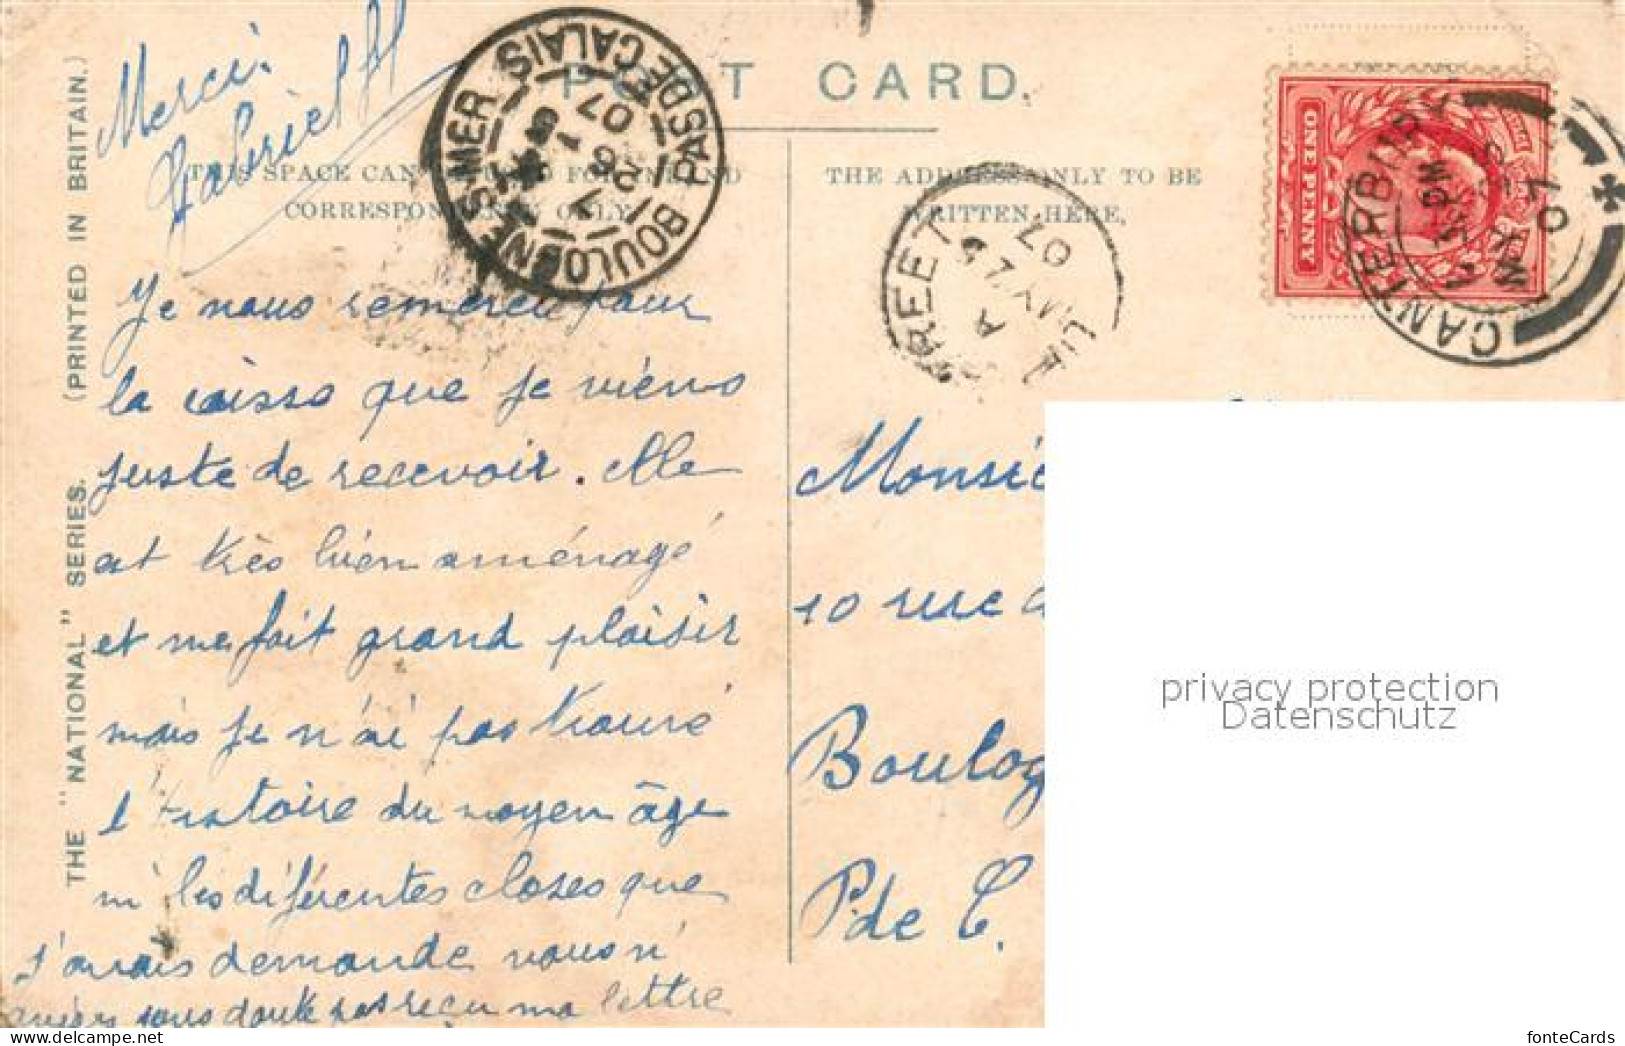 Merci.
Gabriel H
POST CARD.
THIS SPACE CAN BE USED FOR INLAND
CORRESPONDENCE ONLY.
THE ADDRESS ONLY TO BE
WRITTEN HERE.
THE "NATIONAL" SERIES. (PRINTED IN BRITAIN.)
BOULOGNE-S-MER
PAS DE CALAIS
26
07
REET
A
MY 24
07
CANTERBURY
PM
07
ONE PENNY
Je vous remercie pour
la caisse que je viens
juste de recevoir. Elle
est très bien aménagé
et me fait grand plaisir
mais je n'ai pas trouvé
l'histoire du moyen âge
ni les différentes choses que
j'avais demandé vous n'
aviez sans doute pas reçu ma lettre
Monsie
10 rue
Boulog
P. de C.
privacy protection
Datenschutz
fonteCards